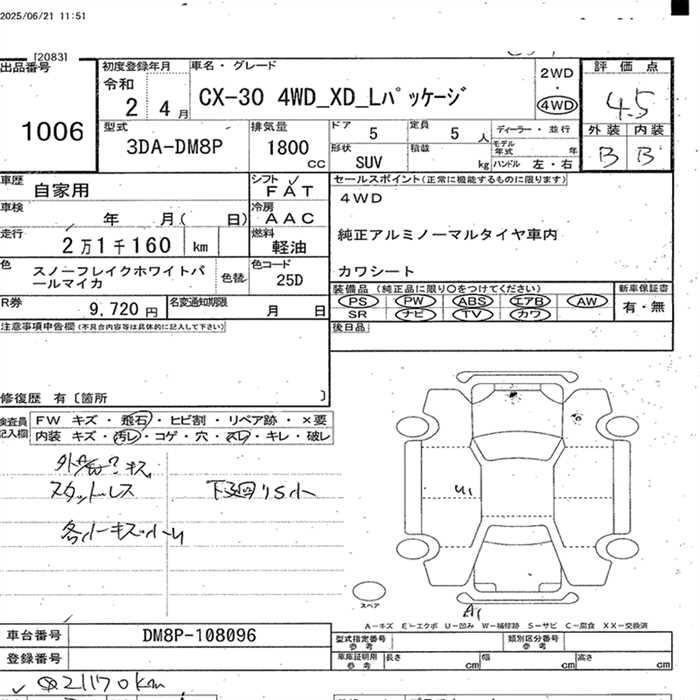 2025/06/21 11:51
[2083]
出品番号
1006
初度登録年月
令和
2 4月
車名・グレード
CX-30 4WD_XD_Lパッケージ
2WD
4WD
評価点
4.5
外装 内装
B B
型式
3DA-DM8P
排気量
1800
CC
ドア
5
定員
5 人
形状
SUV
積載
kg
ディーラー・並行
モデル
年式
年
ハンドル 左・右
車歴
自家用
シフト
F A T
車検
年 月( 日)
冷房
A A C
走行
2万1千160 km
燃料
軽油
色
スノーフレイクホワイトパ
ールマイカ
色替
色コード
25D
R券
9,720 円
名変通知期限
月 日
セールスポイント(正常に機能するものに限ります)
4WD
純正アルミノーマルタイヤ車内
カワシート
装備品 (純正品に限り○をつけてください)
PS PW ABS エアB AW
SR ナビ TV カワ
新車保証書
有・無
後日品
注意事項申告欄(不具合内容等は具体的に記入して下さい)
修復歴 有〔箇所 〕
検査員
記入欄
FW キズ・飛石・ヒビ割・リペア跡・×要
内装 キズ・汚レ・コゲ・穴・スレ・キレ・破レ
スタットレス
下廻りS小
U1
A1
スペア
A-キズ E-エクボ U-凹み W-補修跡 S-サビ C-腐食 XX-交換済
車台番号
DM8P-108096
登録番号
型式指定番号
参考
類別区分番号
参考
車庫証明用
参考
長さ cm
幅 cm
高さ cm
21170km